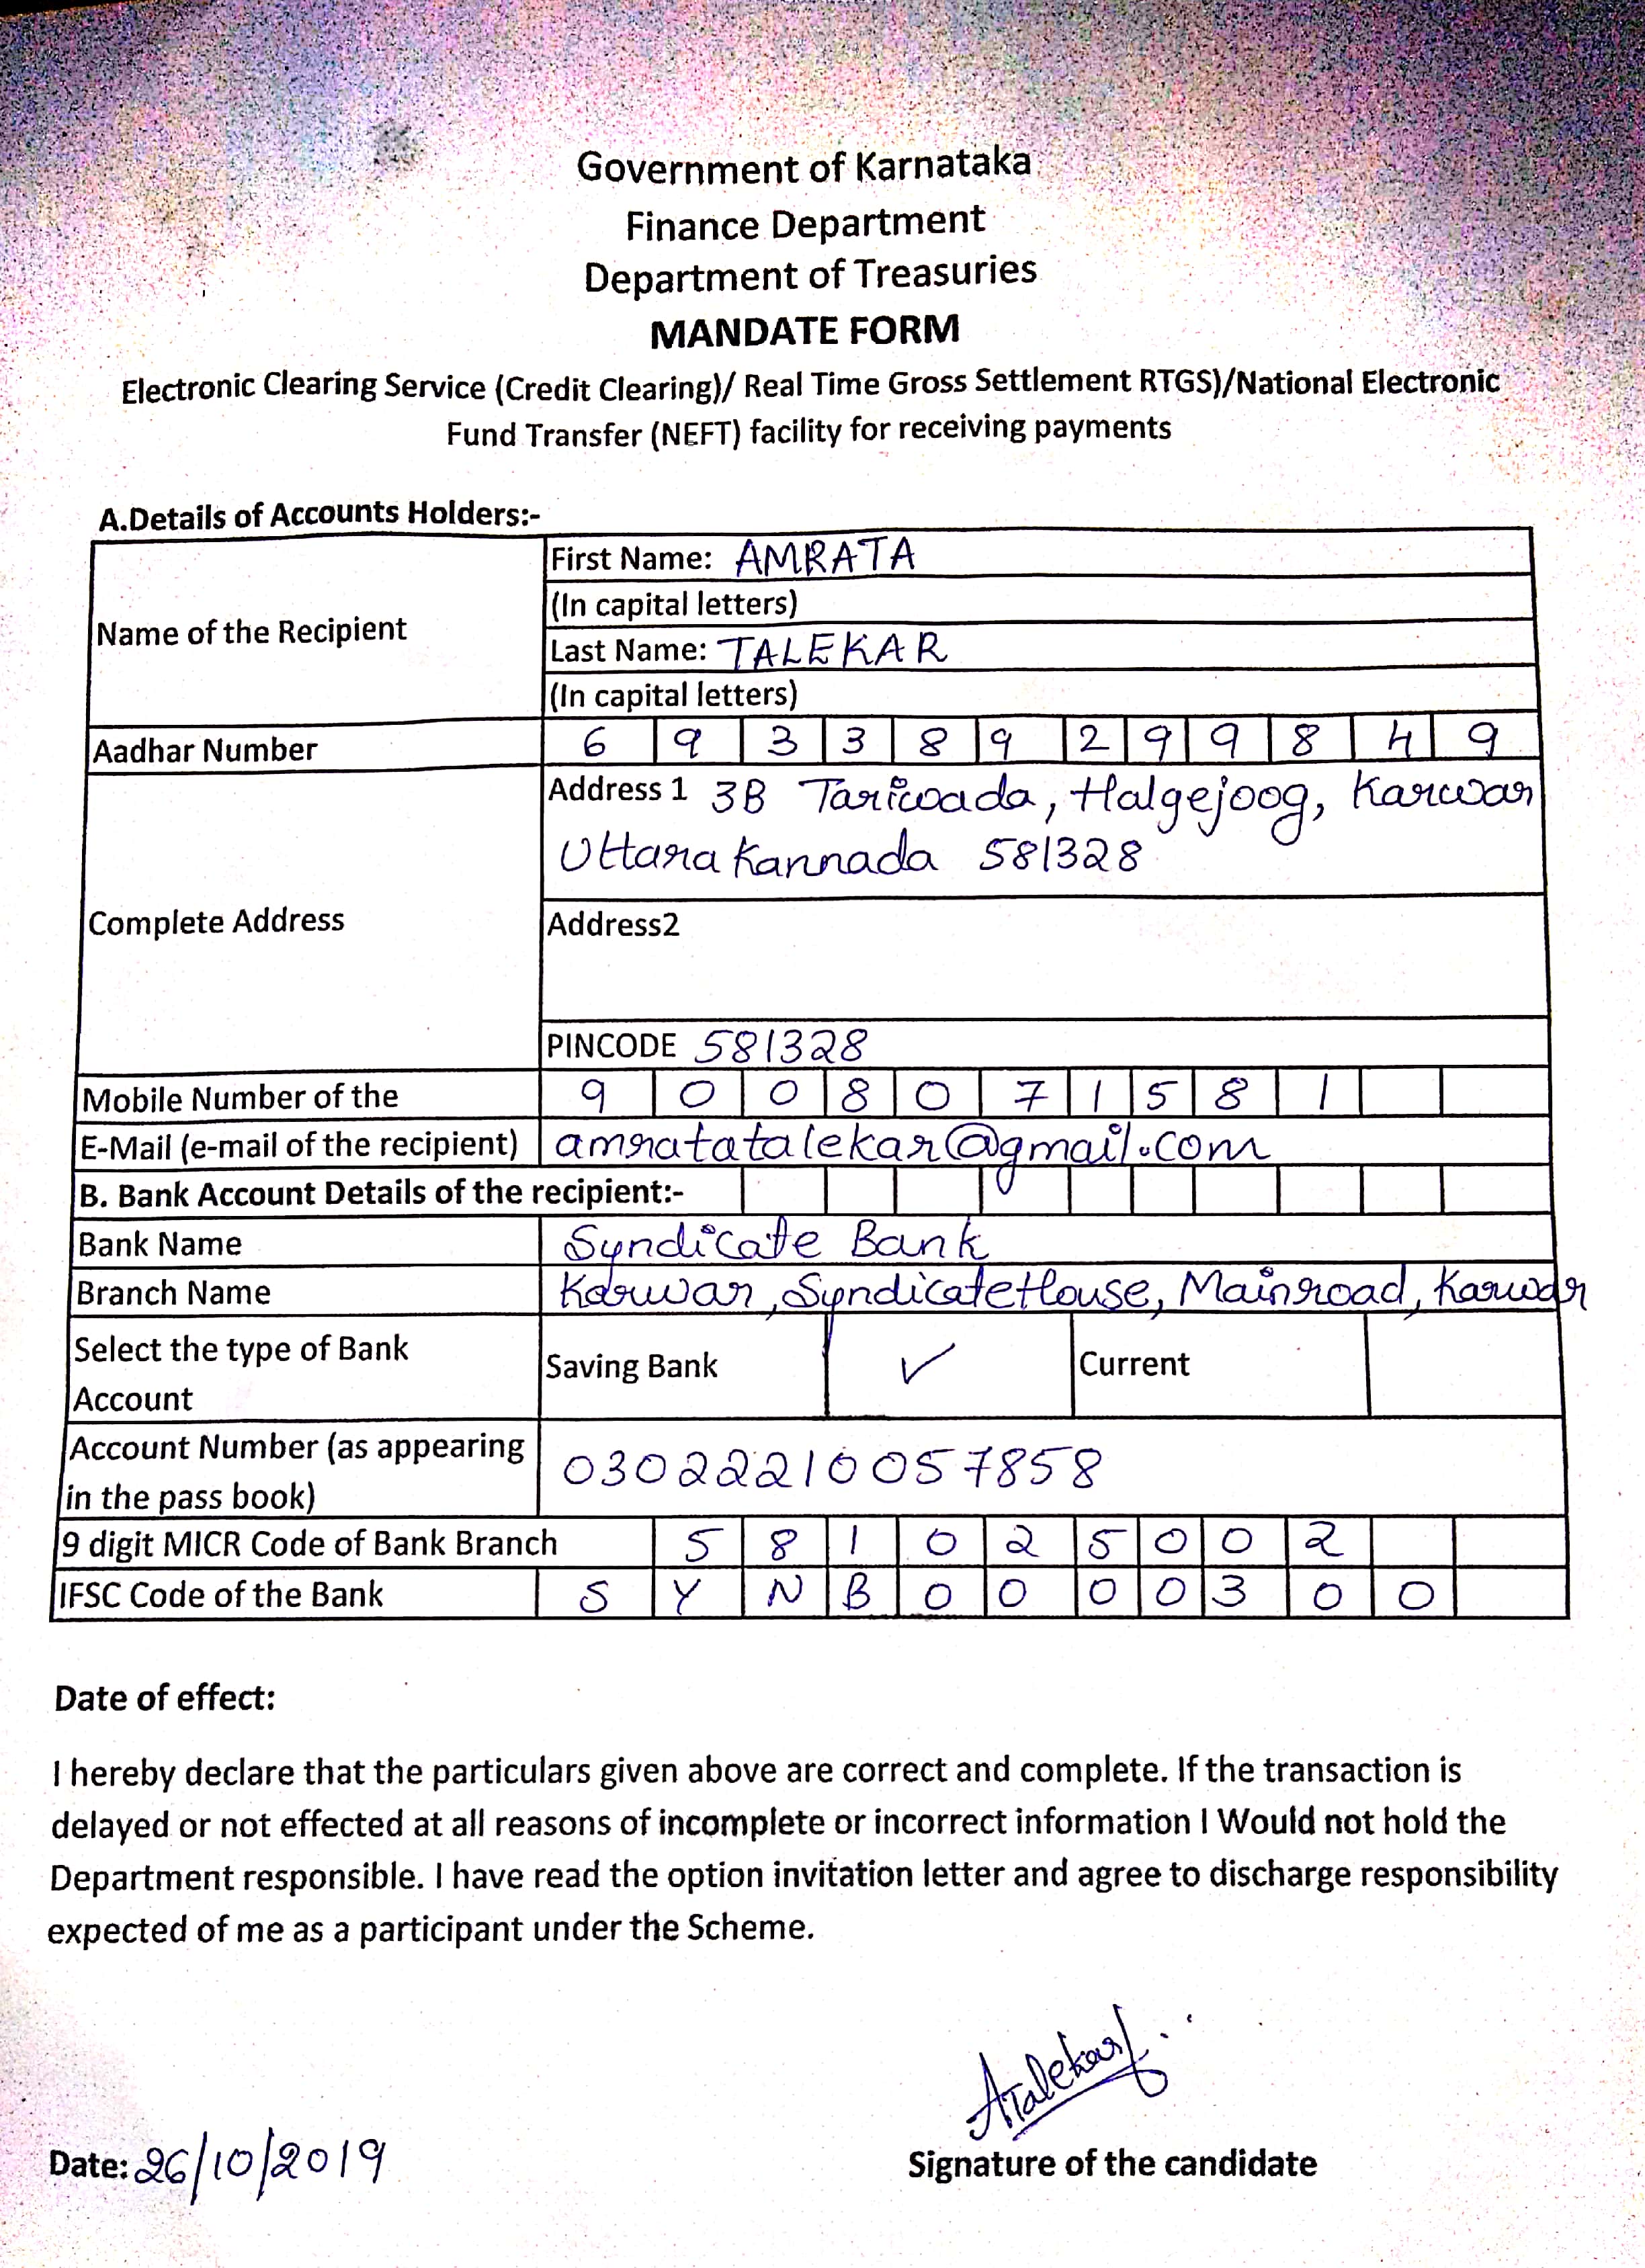 Government of Karnataka
Finance Department
Department of Treasuries
MANDATE FORM
Electronic Clearing Service (Credit Clearing)/ Real Time Gross Settlement RTGS)/National Electronic
Fund Transfer (NEFT) facility for receiving payments
A.Details of Accounts Holders:-
Name of the Recipient
First Name: AMRATA
(In capital letters)
Last Name: TALEKAR
(In capital letters)
Aadhar Number 6 9 3 3 8 9 2 9 9 8 4 9
Complete Address
Address 1 3B Tariwada, Halgejoog, Karwar
Uttara Kannada 581328
Address2
PINCODE 581328
Mobile Number of the 9 0 0 8 0 7 1 5 8 1
E-Mail (e-mail of the recipient) amratatalekar@gmail.com
B. Bank Account Details of the recipient:-
Bank Name Syndicate Bank
Branch Name Karwar, Syndicate House, Mainroad, Karwar
Select the type of Bank
Account
Saving Bank ✓ Current
Account Number (as appearing
in the pass book)
03022210057858
9 digit MICR Code of Bank Branch 5 8 1 0 2 5 0 0 2
IFSC Code of the Bank S Y N B 0 0 0 0 3 0 0
Date of effect:
I hereby declare that the particulars given above are correct and complete. If the transaction is
delayed or not effected at all reasons of incomplete or incorrect information I Would not hold the
Department responsible. I have read the option invitation letter and agree to discharge responsibility
expected of me as a participant under the Scheme.
ATalekar
Date: 26/10/2019
Signature of the candidate